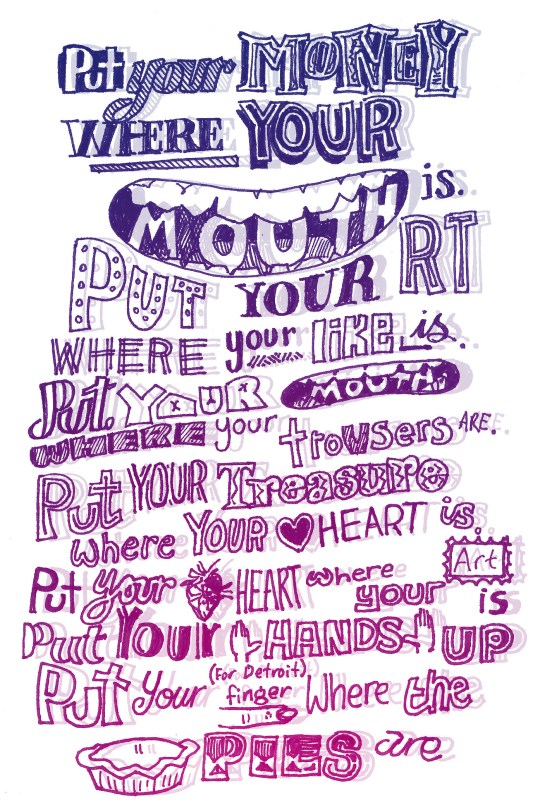 Put your MONEY
WHERE YOUR
MOUTH is.
PUT YOUR RT
WHERE your like is.
Put YOUR MOUTH
WHERE your trowsers ARE.
Put YOUR Treasure
where YOUR HEART is.
Put Your HEART where your Art is
Put YOUR HANDS UP
Put Your (For Detroit) finger Where the
PIES are